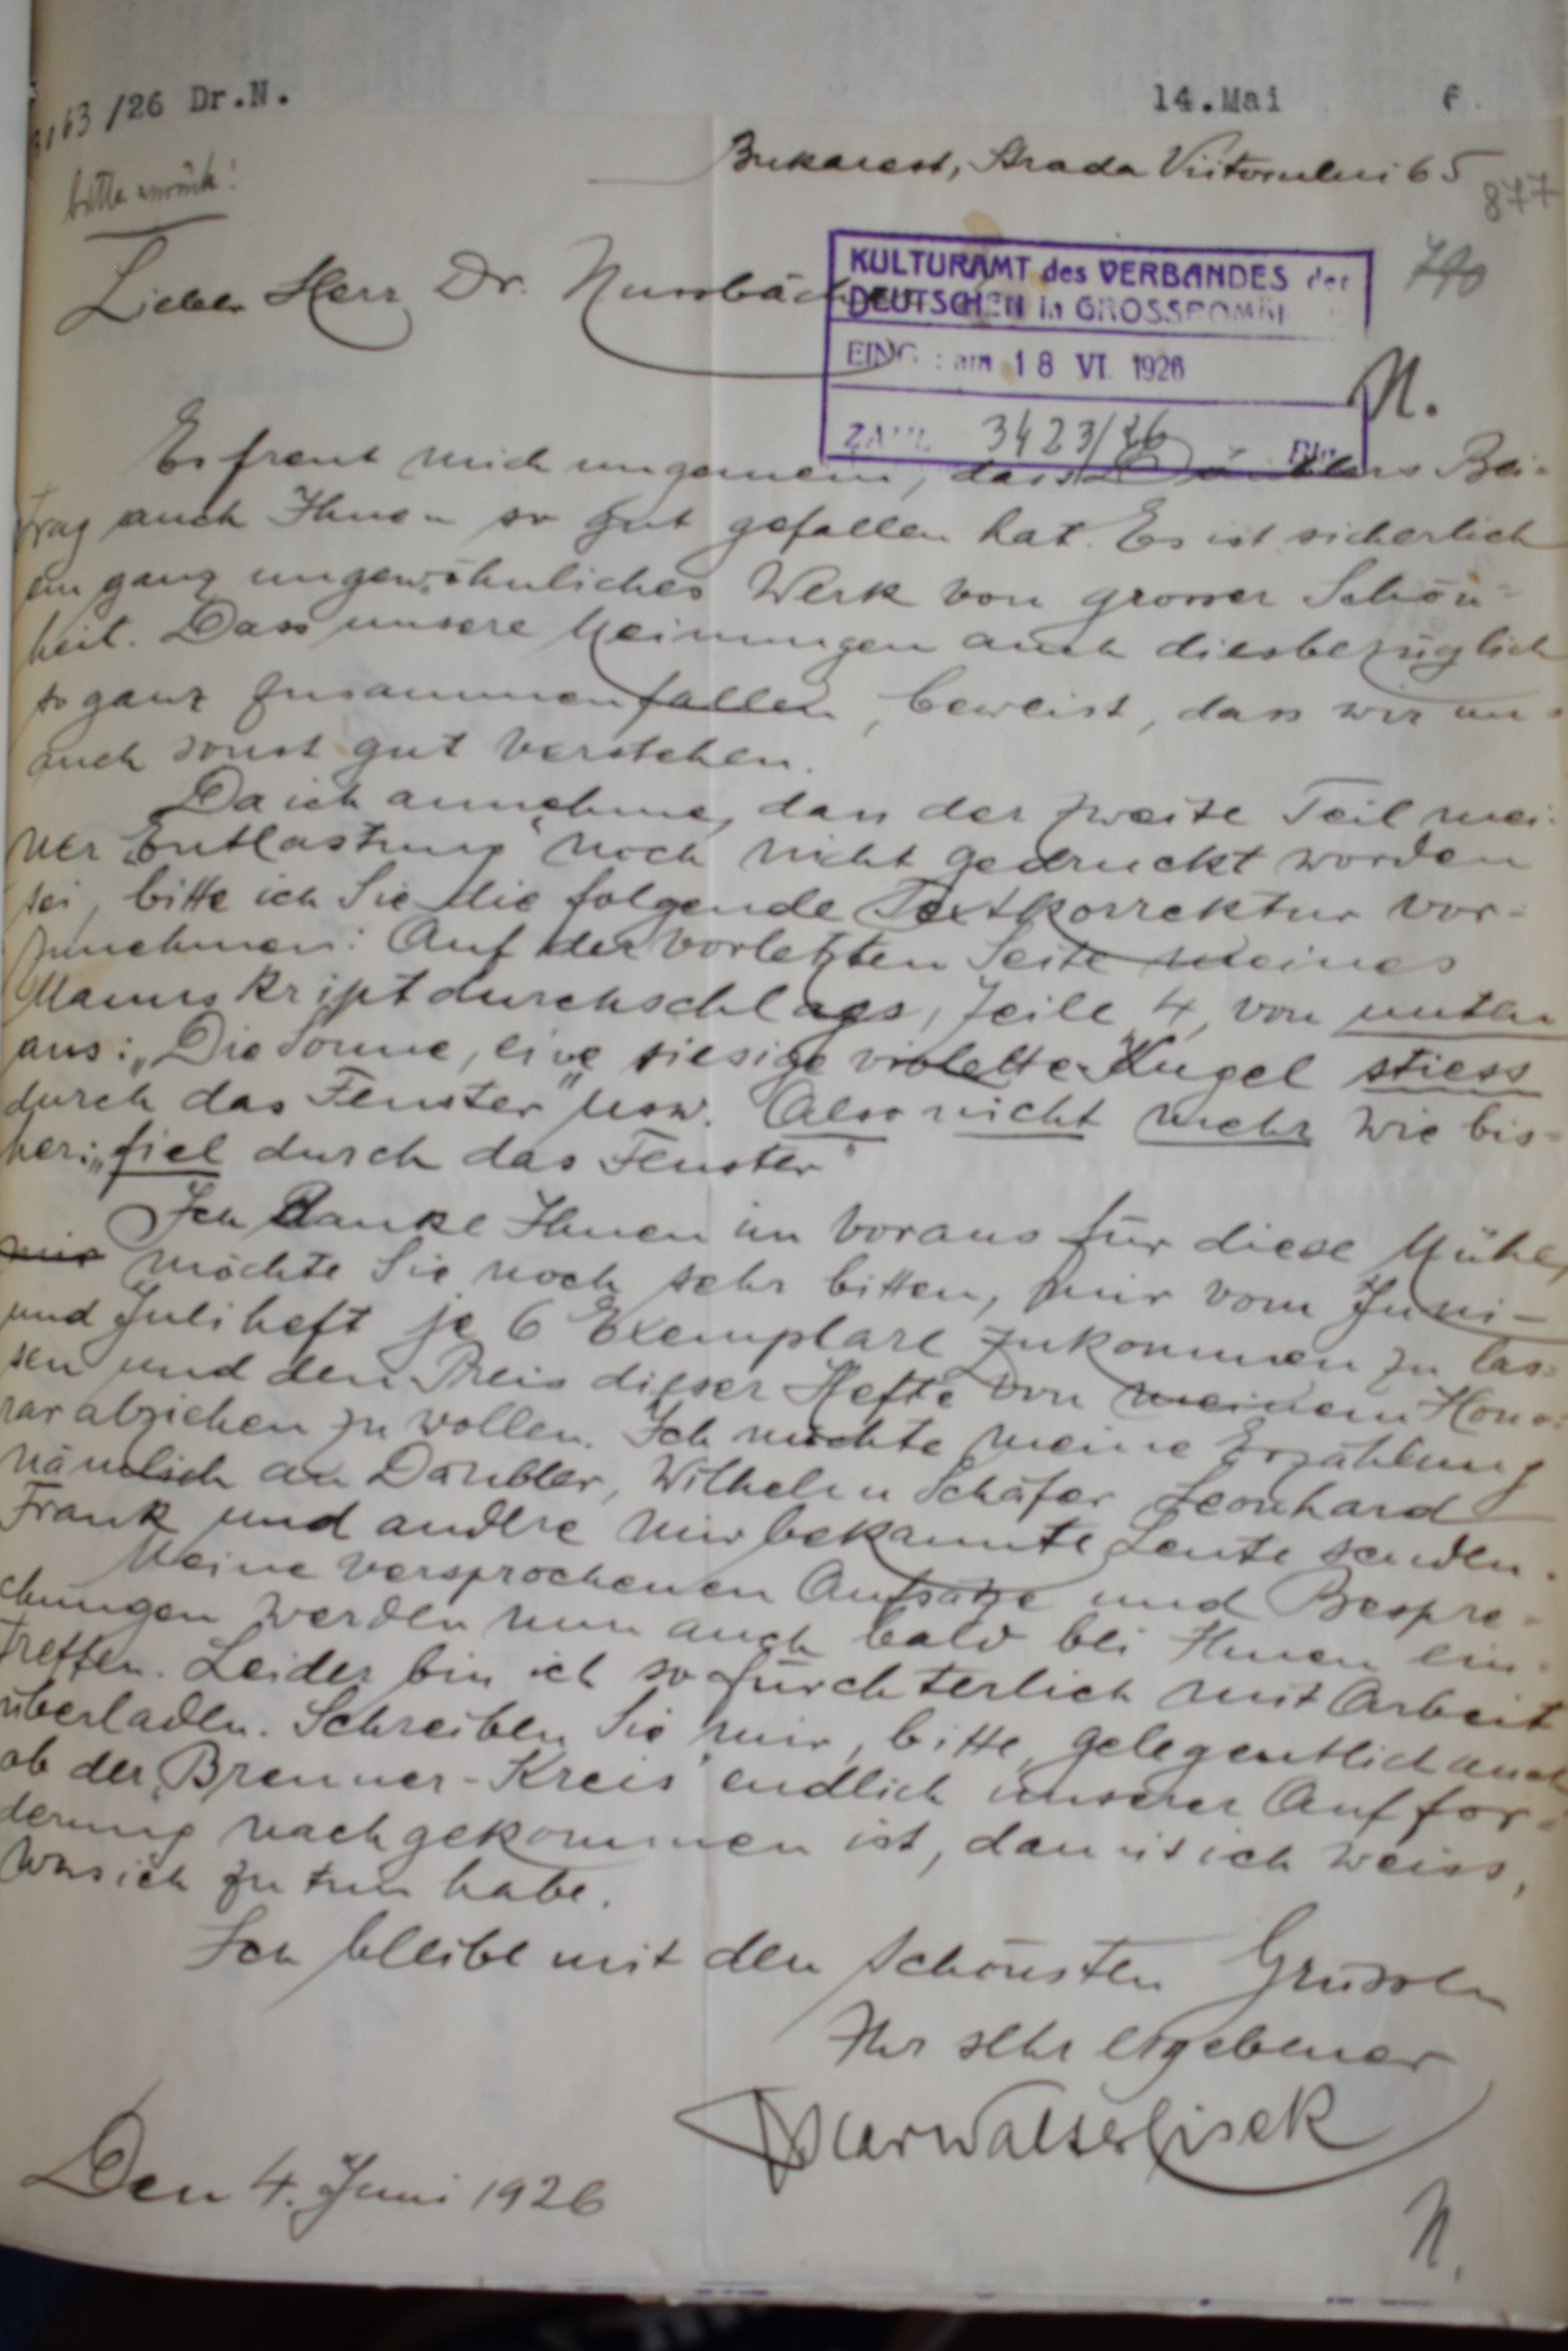 3163/26 Dr.N.
14.Mai 6.
Bukarest, Strada Viitorului 65
877
bitte zurück!
790
Lieber Herr Dr. Nussbächer
KULTURAMT des VERBANDES der
DEUTSCHEN in GROSSROMÄ
EING.: am 18 VI. 1926
ZAHL 3423/26 Blg.
N.
Es freut mich ungemein, dass Däublers Bei-
trag auch Ihnen so gut gefallen hat. Es ist sicherlich
ein ganz ungewöhnliches Werk von grosser Schön-
heit. Dass unsere Meinungen auch diesbezüglich
so ganz zusammenfallen, beweist, dass wir uns
auch sonst gut verstehen.
Da ich annehme, dass der zweite Teil mei-
ner „Entlastung" noch nicht gedruckt worden
sei, bitte ich Sie die folgende Textkorrektur vor-
zunehmen: Auf der vorletzten Seite meines
Manuskriptdurchschlags, Zeile 4, von unten
aus: „Die Sonne, eine riesige violette Kugel stiess
durch das Fenster" usw. Also nicht mehr wie bis-
her: „fiel durch das Fenster"
Ich danke Ihnen im voraus für diese Mühe,
mir möchte Sie noch sehr bitten, mir vom Juni-
und Juliheft je 6 Exemplare zukommen zu las-
sen und den Preis dieser Hefte von meinem Hono-
rar abziehen zu wollen. Ich möchte meine Erzählung
nämlich an Däubler, Wilhelm Schäfer, Leonhard
Frank und andere mir bekannte Leute senden.
Meine versprochenen Aufsätze und Bespre-
chungen werden nun auch bald bei Ihnen ein-
treffen. Leider bin ich so fürchterlich mit Arbeit
überladen. Schreiben Sie mir, bitte, gelegentlich auch
ob der „Brenner-Kreis" endlich unserer Auffor-
derung nachgekommen ist, damit ich weiss,
was ich zu tun habe.
Ich bleibe mit den schönsten Grüssen
Ihr sehr ergebener
Oscar Walter Cisek
Den 4. Juni 1926
N.